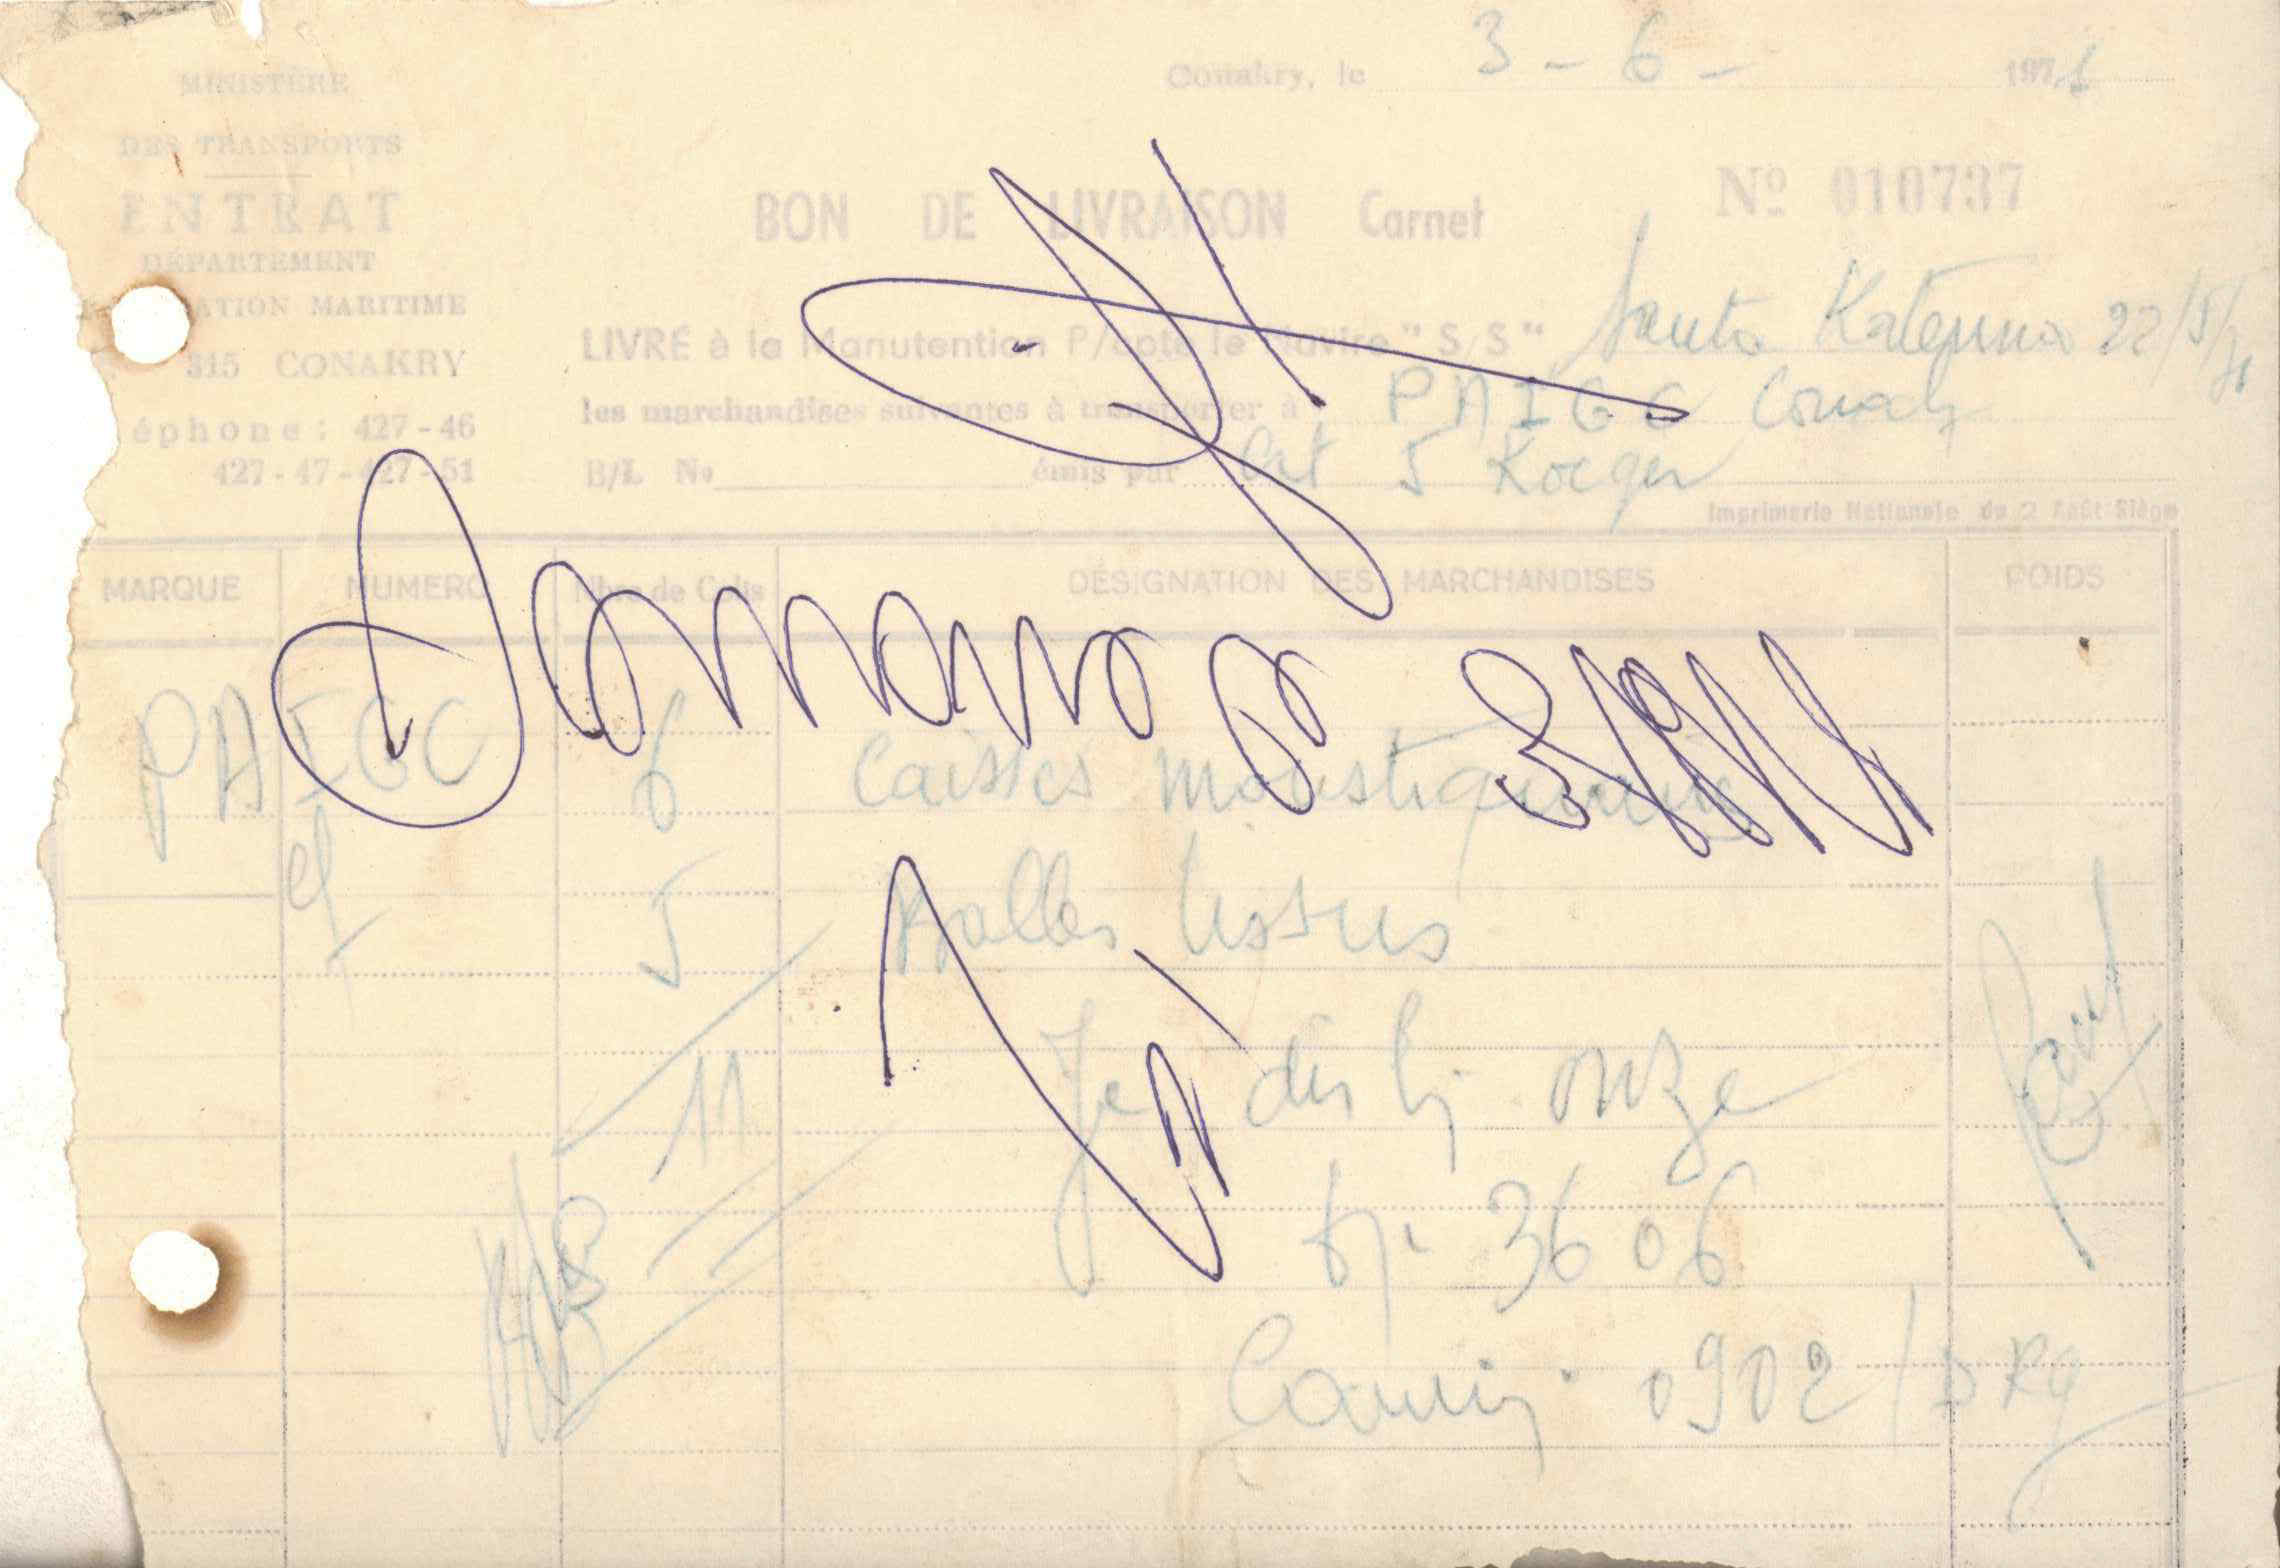 MINISTÈRE
DES TRANSPORTS
ENTRAT
DÉPARTEMENT
ATION MARITIME
315 CONAKRY
éphone: 427-46
427-47-427-51
Conakry, le 3-6- 1971
BON DE LIVRAISON Carnet Nº 010737
LIVRÉ à la Manutention P/cpte le Navire "S/S" Santa 22/5/71
les marchandises suivantes à transporter à PAIGC Conakry
B/L No émis par 5
Imprimerie Nationale du 2 Août Siège
MARQUE NUMERO Nbre de Colis DÉSIGNATION DES MARCHANDISES POIDS
PAIGC 6 Caisses moustiquaires
et 5 Balles tissus
11 Je dis onze
3606
Camion 0902